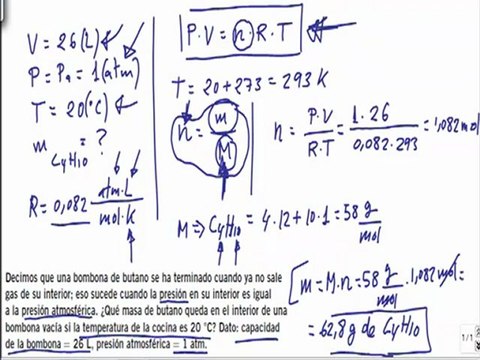 V = 26 (L)
P = Pa = 1 (atm)
T = 20 (°C)
m C4H10 = ?
R = 0,082 atm·L / mol·K
P·V = n·R·T
T = 20 + 273 = 293 K
n = m / M
n = P·V / R·T = 1·26 / 0,082·293 = 1,082 mol
M => C4H10 = 4·12 + 10·1 = 58 g / mol
m = M·n = 58 g / mol · 1,082 mol =
= 62,8 g de C4H10
Decimos que una bombona de butano se ha terminado cuando ya no sale
gas de su interior; eso sucede cuando la presión en su interior es igual
a la presión atmosférica. ¿Qué masa de butano queda en el interior de una
bombona vacía si la temperatura de la cocina es 20 °C? Dato: capacidad
de la bombona = 26 L, presión atmosférica = 1 atm.
1/1